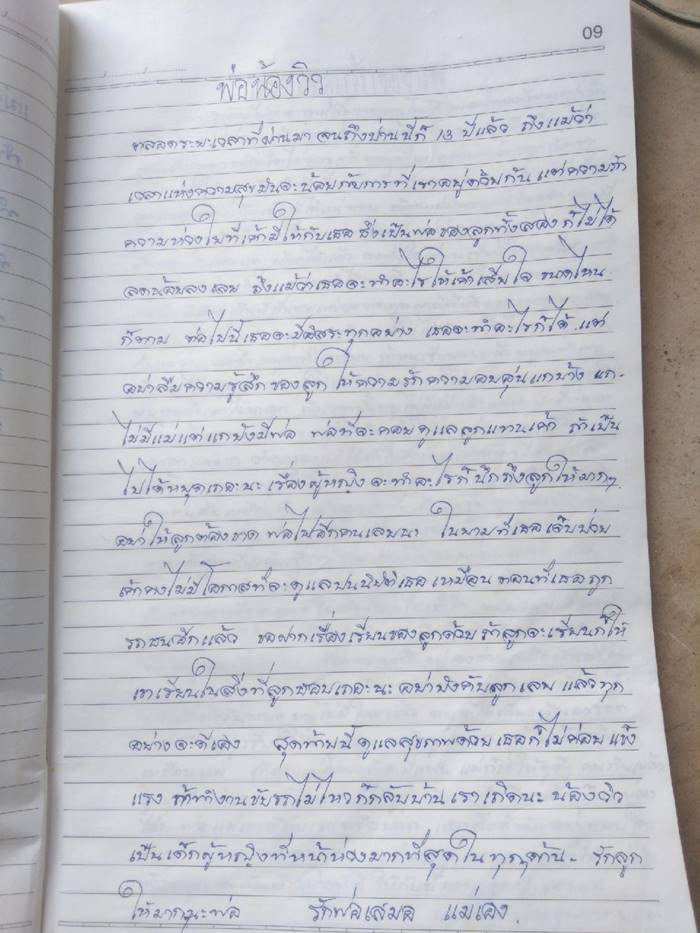 09
พ่อน้องวิว
ตลอดระยะเวลาที่ผ่านมา จนถึงป่านนี้ก็ 13 ปีแล้ว ถึงแม้ว่า
เวลาแห่งความสุขมันจะน้อยกับการที่เราอยู่ด้วยกัน แต่ความรัก
ความห่วงใยที่เค้ามีให้กับเธอ ซึ่งเป็นพ่อของลูกทั้งสอง ก็ไม่ได้
ลดน้อยลงเลย ถึงแม้ว่าเธอจะทำอะไรให้เค้าเสียใจ ขนาดไหน
ก็ตาม ต่อไปนี้เธอจะมีอิสระทุกอย่าง เธอจะทำอะไรก็ได้ แต่
อย่าลืมความรู้สึกของลูก ให้ความรักความอบอุ่นแกบ้าง แก
ไม่มีแม่แต่แกยังมีพ่อ พ่อที่จะคอยดูแลลูกแทนเค้า ถ้าเป็น
ไปได้หยุดเถอะนะ เรื่องผู้หญิง จะทำอะไรก็นึกถึงลูกให้มากๆ
อย่าให้ลูกต้องขาด พ่อไปอีกคนเลยนะ ในยามที่เธอเจ็บป่วย
เค้าคงไม่มีโอกาสที่จะดูแลปรนนิบัติเธอ เหมือน ตอนที่เธอถูก
รถชนอีกแล้ว ขอฝากเรื่องเรียนของลูกด้วย ถ้าลูกจะเรียนก็ให้
เขาเรียนในสิ่งที่ลูกชอบเถอะนะ อย่าบังคับลูกเลย แล้วทุก
อย่างจะดีเอง สุดท้ายนี้ ดูแลสุขภาพด้วย เธอก็ไม่ค่อย แข็ง
แรง ถ้าทำงานขับรถไม่ไหว ก็กลับบ้าน เราเถิดนะ น้องวิว
เป็นเด็กผู้หญิงที่น่าห่วงมากที่สุดในทุกๆด้าน รักลูก
ให้มากๆนะพ่อ รักพ่อเสมอ แม่เอง.